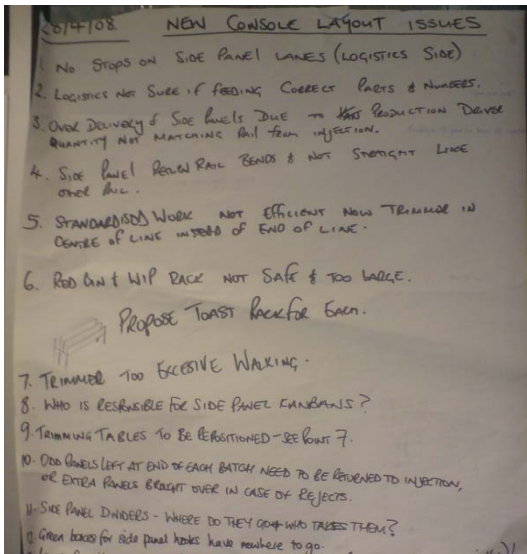 20/4/08 NEW CONSOLE LAYOUT ISSUES
1. NO STOPS ON SIDE PANEL LANES (LOGISTICS SIDE)
2. LOGISTICS NOT SURE IF FEEDING CORRECT PARTS & NUMBERS.
3. OVER DELIVERY OF SIDE PANELS DUE TO PRODUCTION DRIVER
QUANTITY NOT MATCHING RAIL FROM INJECTION.
4. SIDE PANEL RETURN RAIL BENDS & NOT STRAIGHT LIKE
OTHER RAIL.
5. STANDARDISED WORK NOT EFFICIENT NOW TRIMMER IN
CENTRE OF LINE INSTEAD OF END OF LINE.
6. RED BIN & WIP RACK NOT SAFE & TOO LARGE.
PROPOSE TOAST RACK FOR EACH.
7. TRIMMER TOO EXCESIVE WALKING.
8. WHO IS RESPONSIBLE FOR SIDE PANEL KANBANS?
9. TRIMMING TABLES TO BE REPOSITIONED - SEE POINT 7.
10. ODD PANELS LEFT AT END OF EACH BATCH NEED TO BE RETURNED TO INJECTION,
OR EXTRA PANELS BROUGHT OVER IN CASE OF REJECTS.
11. SIDE PANEL DIVIDERS - WHERE DO THEY GO & WHO TAKES THEM?
12. Green boxes for side panel hooks have nowhere to go.